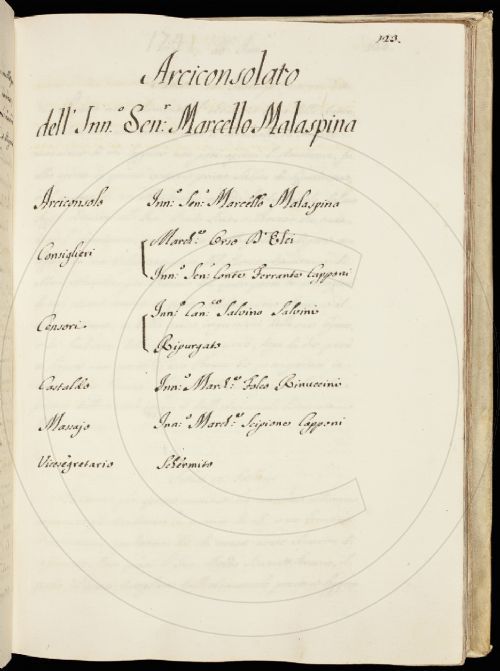 123.
Arciconsolato
dell' Inn.º Sen.r Marcello Malaspina
Arciconsolo Inn.º Sen.r Marcello Malaspina
Consiglieri
March.se Orso D'Elci
Inn.º Sen.r Conte Ferrante Capponi
Censori
Inn.º Can.co Salvino Salvini
Ripurgato
Castaldo Inn.º March.se Folco Rinuccini
Massajo Inn.º March.se Scipione Capponi
Vicesegretario Schermito